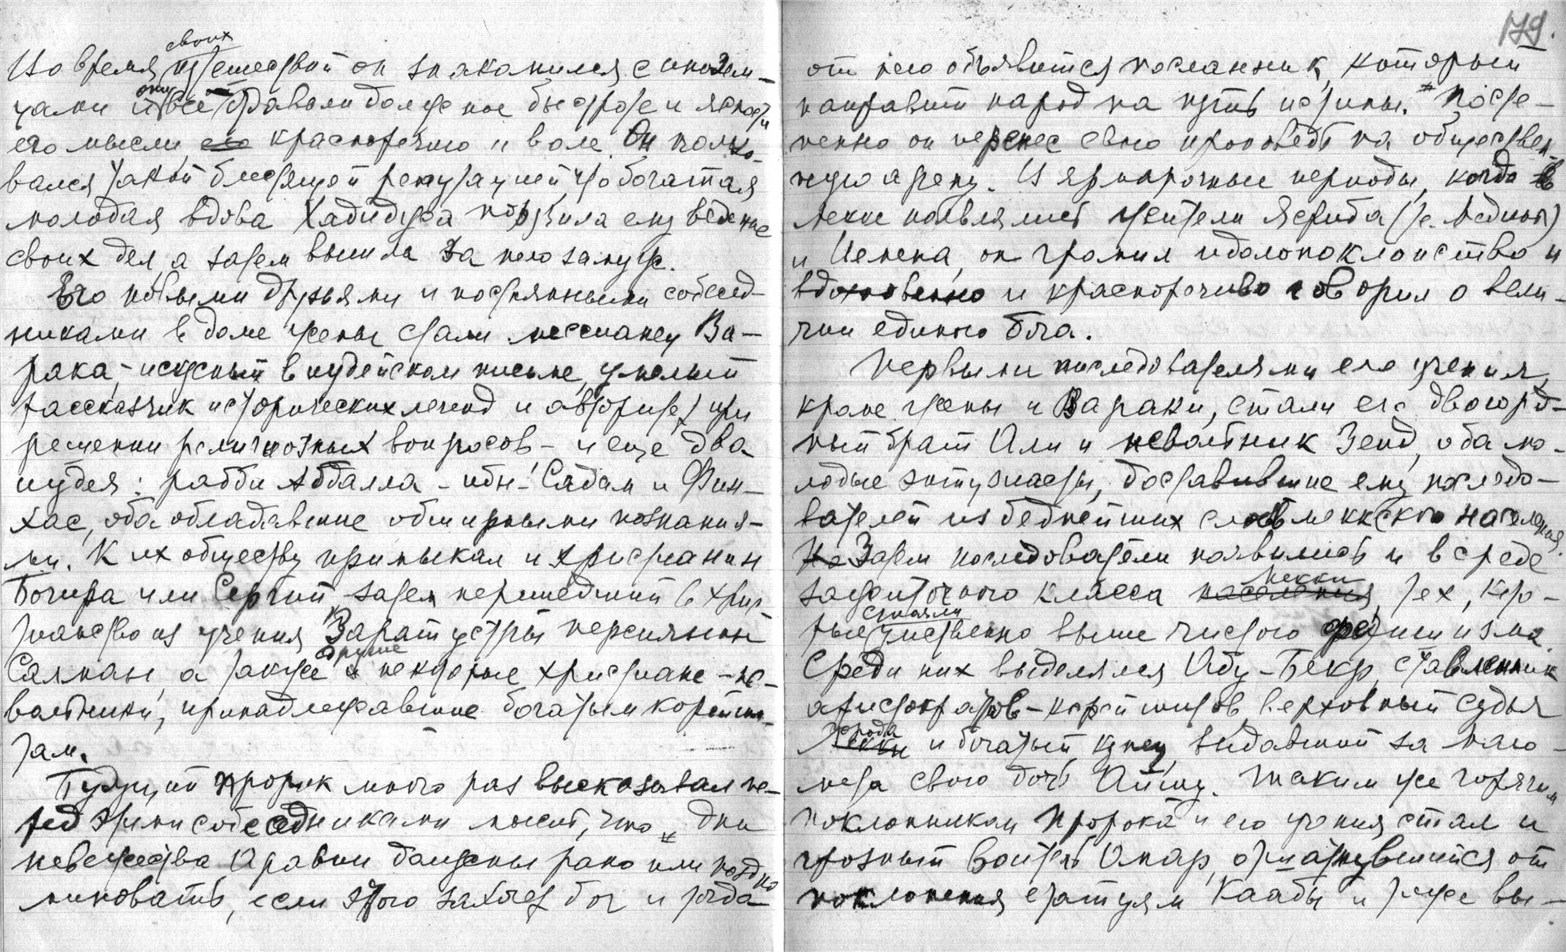 Во время своих путешествий он знакомился с инозем-
цами и все они отдавали должное быстроте и ясности
его мысли, его красноречию и воле. Он пользо-
вался такой блестящей репутацией что богатая
молодая вдова Хадиджа поручила ему ведение
своих дел, а затем вышла за него замуж.
Его новыми друзьями и постоянными собесед-
никами в доме жены стали мессианец Ва-
рака, - искусный в иудейском письме, умелый
рассказчик исторических легенд и авторитет при
решении религиозных вопросов - и еще два
иудея: рабби Абдалла-ибн-Салам и Фин-
хас, оба обладавшие обширными познания-
ми. К их обществу примыкал и христианин
Богира или Сергий затем перешедший в хрис-
тианство из учения Заратустры персиянин
Салман, а также и другие некоторые христиане - не-
вольники, принадлежавшие богатым корейши-
там.
Будущий пророк много раз высказывал пе-
ред этими собеседниками мысль, что "дни
невежества Аравии должны рано или поздно
миновать, если этого захочет бог и тогда
179.
от него объявится посланник, который
направит народ на путь истины." Посте-
пенно он перенес свою проповедь на обществен-
ную арену. В ярмарочные периоды, когда в
Мекке появлялись жители Ясриба (т.е. Медины)
и Йемена, он громил идолопоклонство и
вдохновенно и красноречиво говорил о вели-
чии единого бога.
Первыми последователями его учения,
кроме жены и Вараки, стали его двоюрод-
ный брат Али и невольник Зейд, оба мо-
лодые энтузиасты, доставившие ему последо-
вателей из беднейших слоев мекского населения
Но Затем последователи появились и в среде
зажиточного класса населения Мекки, тех, кто-
рые стояли умственно выше чистого фетишизма.
Среди них выделялся Абу-Бекр, ставленник
аристократов-корейшитов, верховный судья
Мекки города и богатый купец, выдавший за Маго-
мета свою дочь Айшу. Таким же горячим
поклонником пророка и его учения стал и
грозный воитель Омар, отшатнувшийся от
поклонения статуям Каабы и также вы-